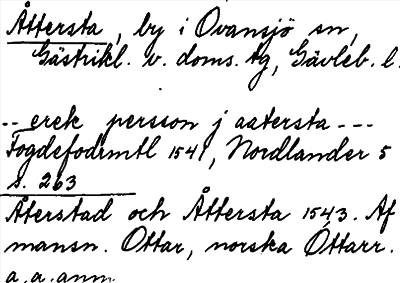 Åttersta, by i Ovansjö sn,
Gästrikl. v. doms. tg, Gävleb. l.
-- erek persson j aatersta ---
Fogdefodrmtl 1541, Nordlander 5
s. 263
Återstad och Åttersta 1543. Af
mansn. Ottar, norska Óttarr.
a.a. anm.